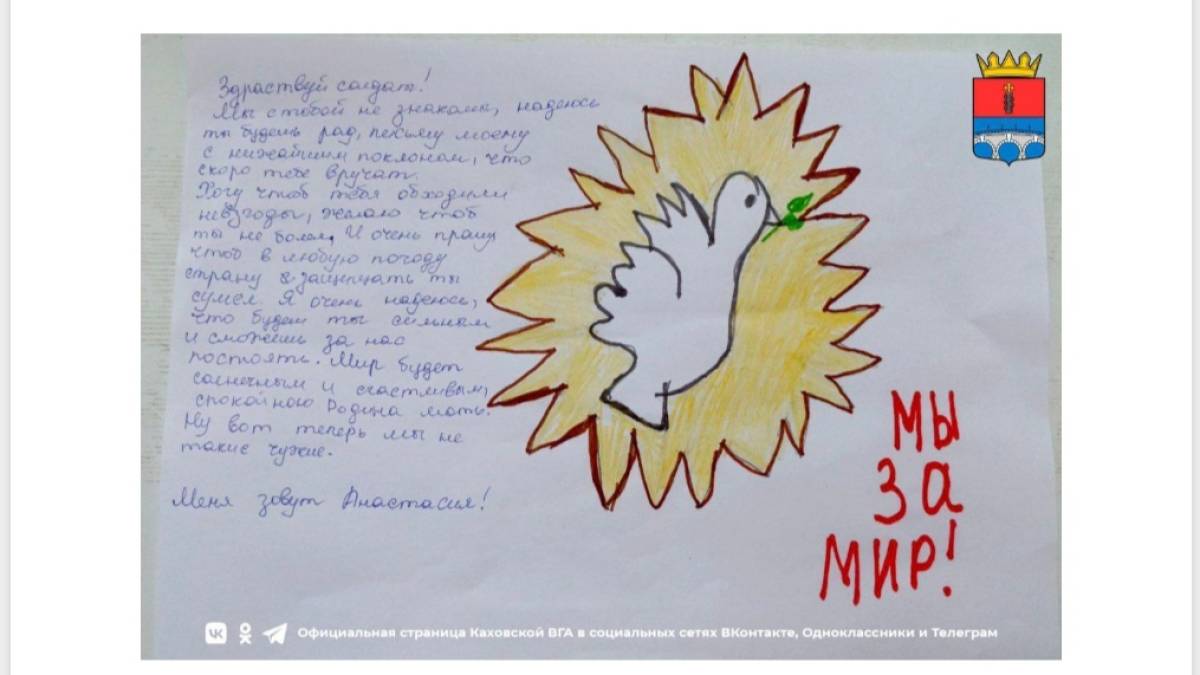 Здраствуй солдат!
Мы с тобой не знакомы, надеюсь
ты будешь рад, письму моему
с нижайшим поклоном, что
скоро тебе вручат.
Хочу чтоб тебя обходили
невзгоды, желаю чтоб
ты не болел, И очень прошу
чтоб в любую погоду
страну защищать ты
сумел. Я очень надеюсь,
что будеш ты сильным
и сможешь за нас
постоять. Мир будет
солнечным и счастливым,
спокойною Родина мать.
Ну вот теперь мы не
такие чужие.
Меня зовут Анастасия!
МЫ
ЗА
МИР!
Официальная страница Каховской ВГА в социальных сетях ВКонтакте, Одноклассники и Телеграм